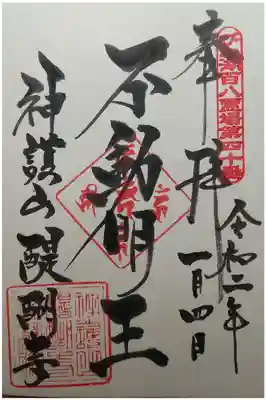 百八霊場第四十
奉拝
令和二年
一月四日
不動明王
神護山醍醐寺